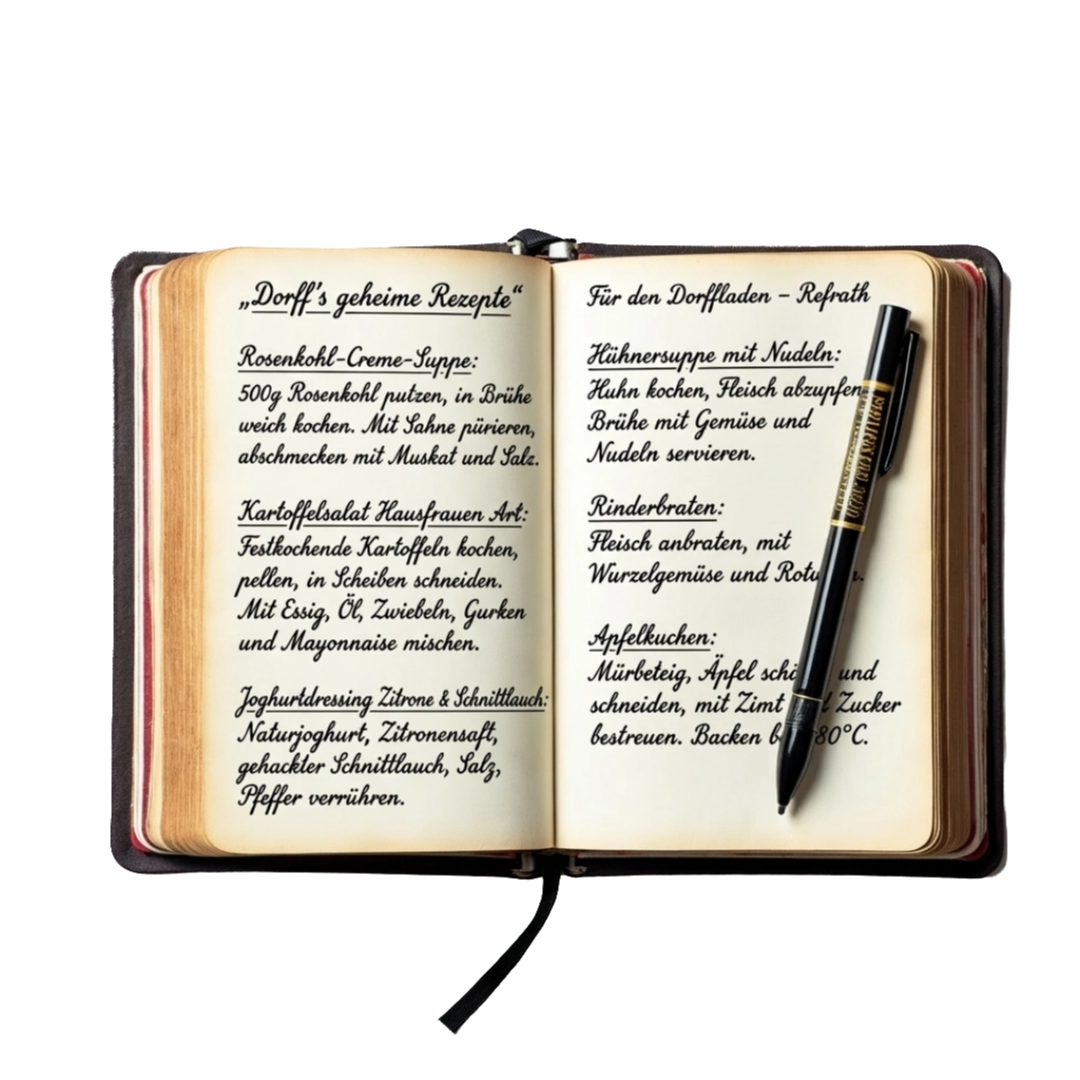 „Dorff's geheime Rezepte“
Rosenkohl-Creme-Suppe:
500g Rosenkohl putzen, in Brühe
weich kochen. Mit Sahne pürieren,
abschmecken mit Muskat und Salz.
Kartoffelsalat Hausfrauen Art:
Festkochende Kartoffeln kochen,
pellen, in Scheiben schneiden.
Mit Essig, Öl, Zwiebeln, Gurken
und Mayonnaise mischen.
Joghurtdressing Zitrone & Schnittlauch:
Naturjoghurt, Zitronensaft,
gehackter Schnittlauch, Salz,
Pfeffer verrühren.
Für den Dorffladen – Refrath
Hühnersuppe mit Nudeln:
Huhn kochen, Fleisch abzupfen
Brühe mit Gemüse und
Nudeln servieren.
Rinderbraten:
Fleisch anbraten, mit
Wurzelgemüse und
Apfelkuchen:
Mürbeteig, Äpfel und
schneiden, mit Zimt Zucker
bestreuen. Backen 80°C.